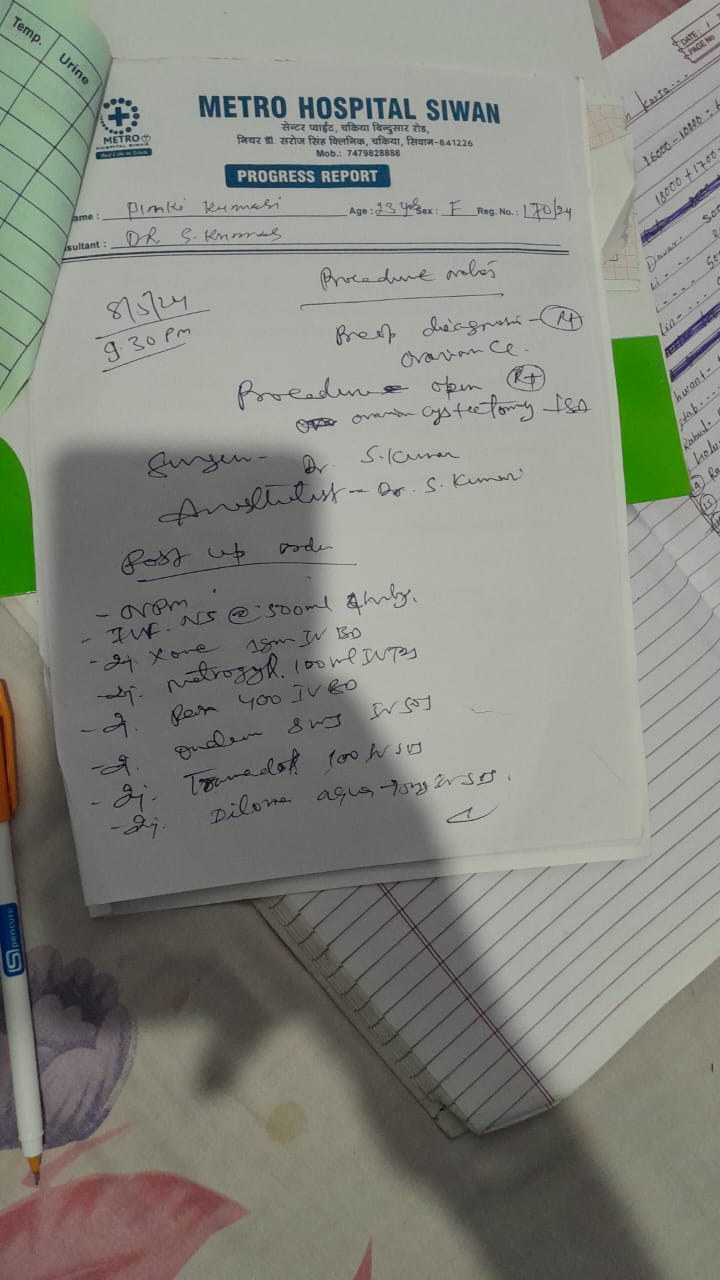 Temp.
Urine
METRO
METRO HOSPITAL SIWAN
सेन्टर प्वाईट, चकिया बिन्दुसार रोड,
नियर डॉ. सरोज सिंह क्लिनिक, चकिया, सिवान-841226
Mob.: 7479828888
PROGRESS REPORT
ame : Pinki Kumari Age : 23 yrs Sex : F Reg. No. : 170/24
sultant : DR S. Kumar
Procedure notes
8/5/24
9.30 PM
Preop diagnosis - Rt
Procedure open Rt
ovarian cystectomy
Surgeon - Dr. S. Kumar
Anesthetist - Dr. S. Kumar
Post op order
- NPM
- IVF. NS @ 500ml
- Inj. Xone 1gm IV BD
- Inj. metrogyl. 100ml IV TDS
- Inj. Pan 400 IV BD
- Inj. ondem 8mg IV SOS
- Inj. Tramadol 100 IV SOS
- Inj. Dilona aqua IV SOS.
DATE: 1
PAGE No
16000 - 10000
18000 + 1700
spencure